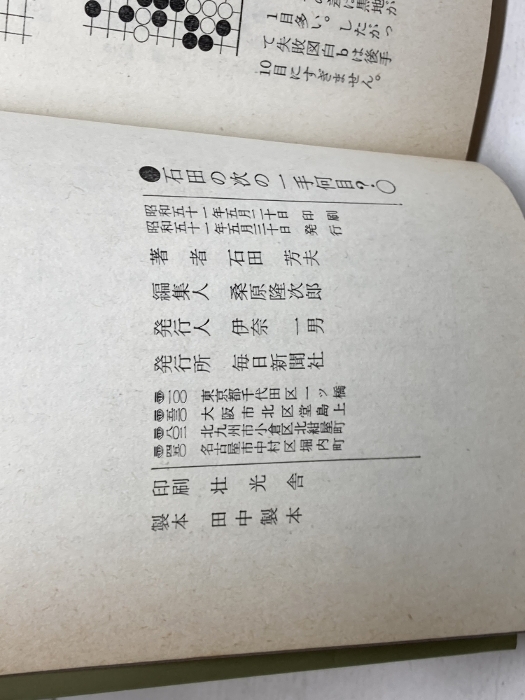 に黒地が
1目多い。したがっ
て失敗図白bは後手
10目にすぎません。
●石田の次の一手何目?○
昭和五十一年五月二十日 印刷
昭和五十一年五月三十日 発行
著者 石田芳夫
編集人 桑原隆次郎
発行人 伊奈一男
発行所 毎日新聞社
〒一〇〇 東京都千代田区一ツ橋
〒五三〇 大阪市北区堂島上
〒八〇二 北九州市小倉区北紺屋町
〒四五〇 名古屋市中村区堀内町
印刷 壮光舎
製本 田中製本